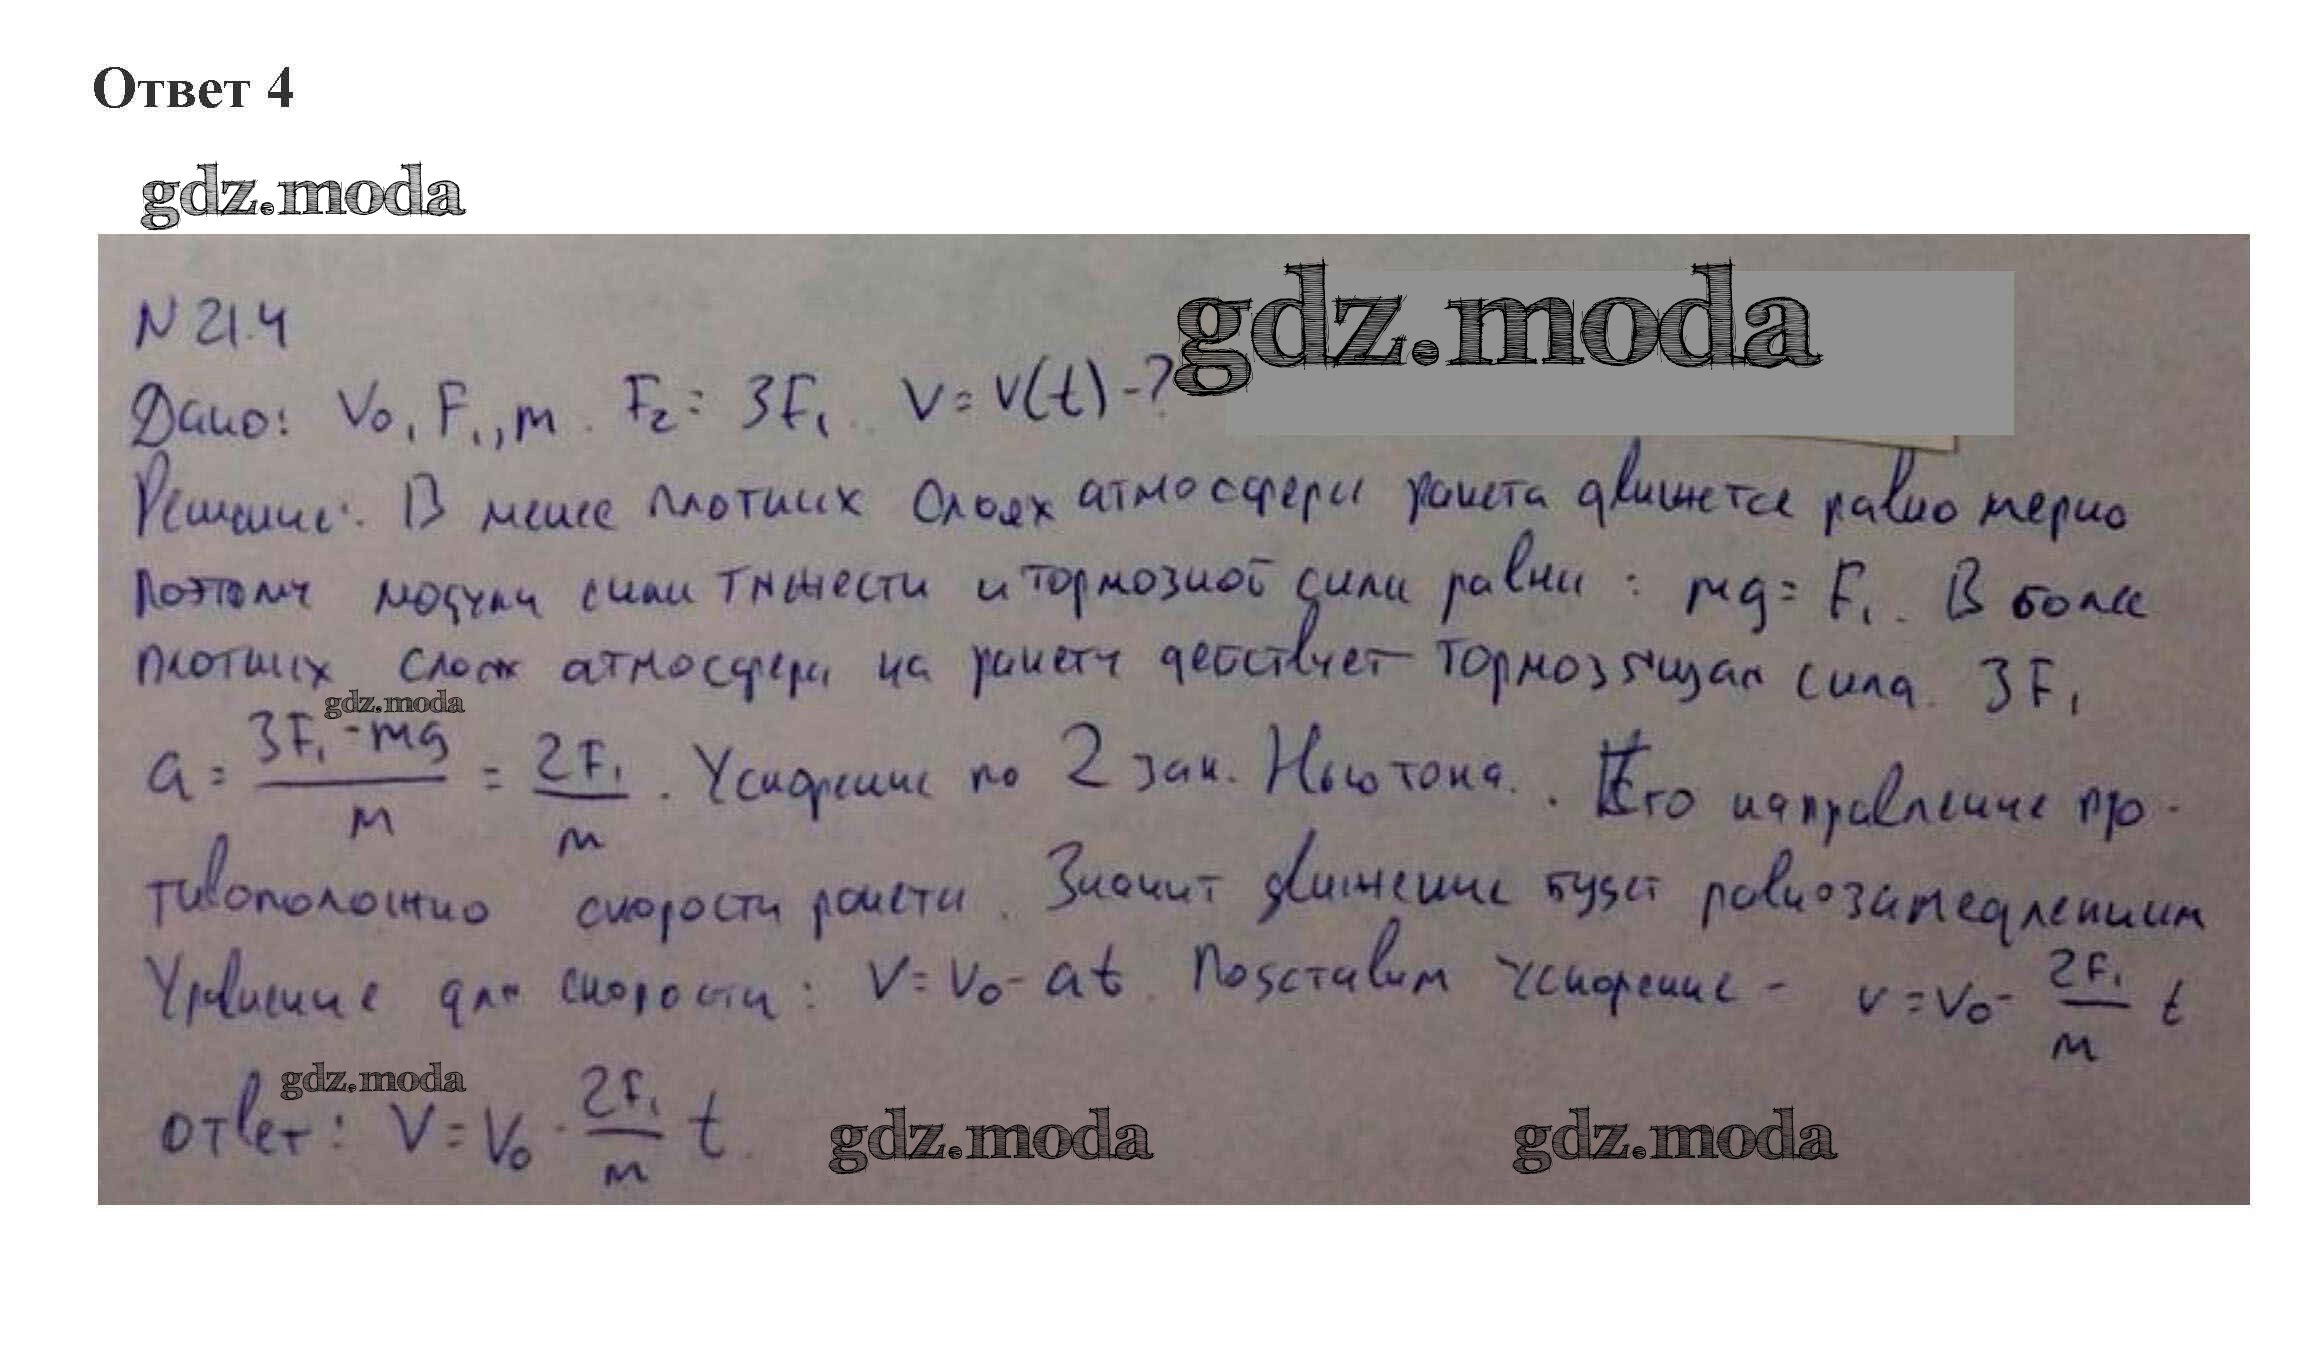 Ответ 4
gdz.moda
gdz.moda
N 21.4
Дано: V₀, F₁, m. F₂ = 3F₁. V = V(t) - ?
Решение: В менее плотних слоях атмосфери ракета движется равномерно
поэтому модули сили тяжести и тормозной сили равни: mg = F₁. В более
плотних слоях атмосфери на ракету действует тормозящая сила. 3F₁
gdz.moda
a = (3F₁ - mg)/m = 2F₁/m. Ускорение по 2 зак. Ньютона. Его направление про-
тивоположно скорости ракети. Значит движение будет равнозамедленним
Уравнение для скорости: V = V₀ - at. Подставим ускорение - v = V₀ - 2F₁/m t
gdz.moda
ответ: V = V₀ - 2F₁/m t.
gdz.moda
gdz.moda